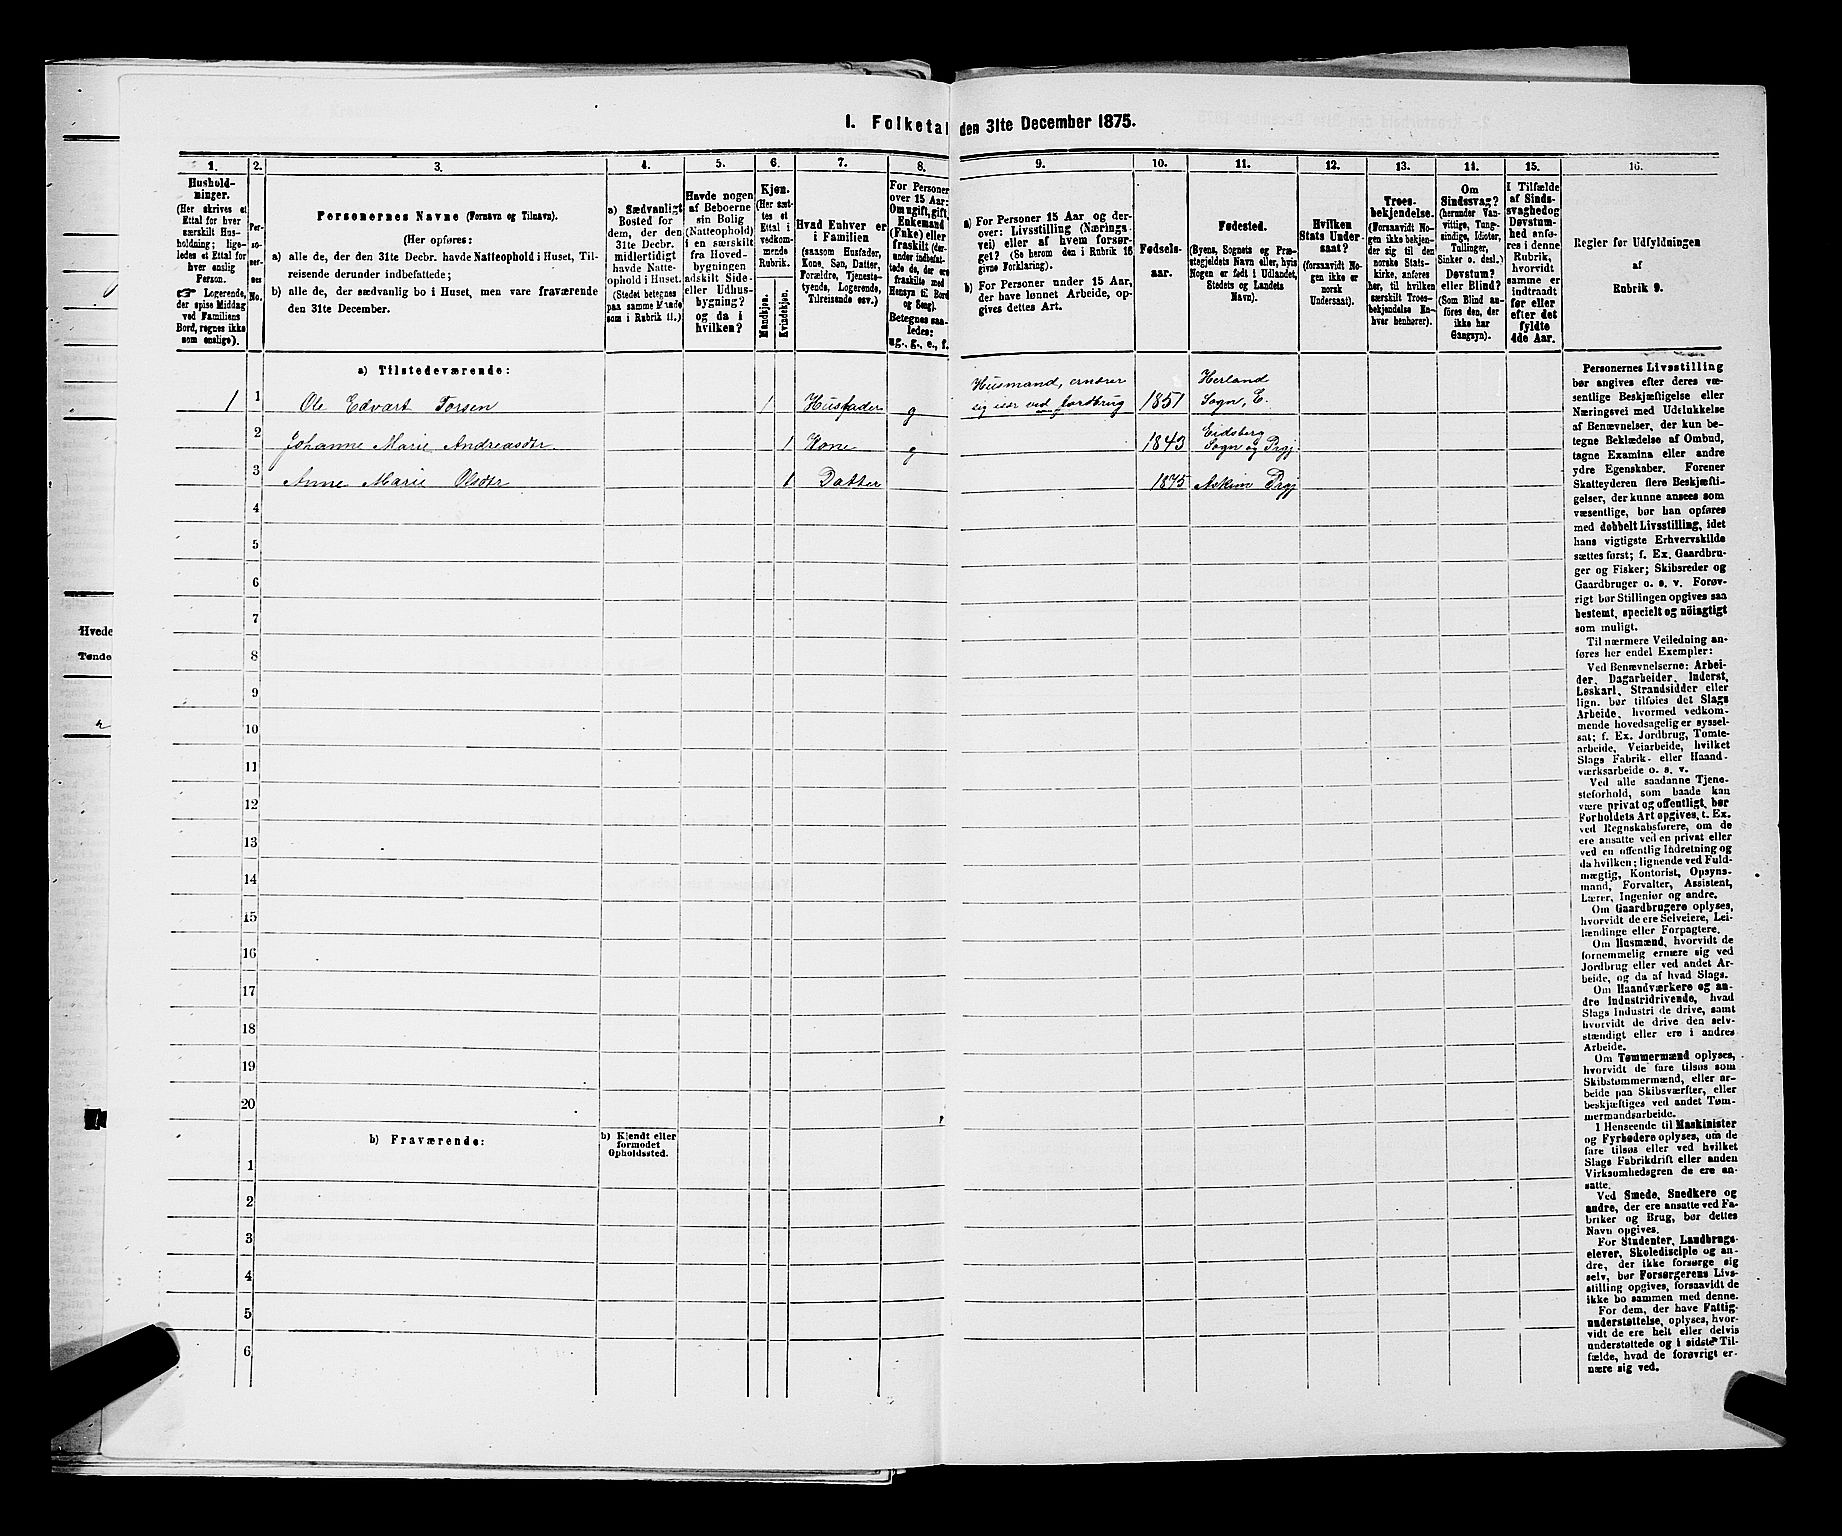 I. Folketal den 31te December 1875.
1.
Hushold-
ninger.
(Her skrives et
Ettal for hver
særskilt Hus-
holdning; lige-
ledes et Ettal for
hver enslig
Person.
☞ Logerende,
der spise Middag
ved Familiens
Bord, regnes ikke
som enslige).
2.
Per-
so-
ner-
nes
No.
3.
Personernes Navne (Fornavn og Tilnavn).
(Her opføres:
a) alle de, der den 31te Decbr. havde Natteophold i Huset, Til-
reisende derunder indbefattede;
b) alle de, der sædvanlig bo i Huset, men vare fraværende
den 31te December.
4.
a) Sædvanligt
Bosted for
dem, der den
31te Decbr.
midlertidigt
havde Natte-
ophold i Huset.
(Stedet betegnes
paa samme Maade
som i Rubrik 11.)
5.
Havde nogen
af Beboerne
sin Bolig
(Natteophold)
i en særskilt
fra Hoved-
bygningen
adskilt Side-
eller Udhus-
bygning?
og da i
hvilken?
6.
Kjøn.
(Her sæt-
tes et
Ettal i
vedkom-
mende
Rubrik.
Mandkjøn.
Kvindekjøn.
7.
Hvad Enhver er
i Familien
(saasom Husfader,
Kone, Søn, Datter,
Forældre, Tjeneste-
tyende, Logerende,
Tilreisende osv.)
8.
For Personer
over 15 Aar:
Om ugift, gift,
Enkemand
(Enke) eller
fraskilt (der-
under indbefat-
tede de, der ere
fraskilte med
Hensyn til Bord
og Seng).
Betegnes saa-
ledes:
ug., g., e., f.
9.
a) For Personer 15 Aar og der-
over: Livsstilling (Nærings-
vei) eller af hvem forsør-
get? (Se herom den i Rubrik 16
givne Forklaring).
b) For Personer under 15 Aar,
der have lønnet Arbeide, op-
gives dettes Art.
10.
Fødsels-
aar.
11.
Fødested.
(Byens, Sognets og Præ-
stegjeldets Navn eller, hvis
Nogen er født i Udlandet,
Stedets og Landets
Navn).
12.
Hvilken
Stats Under-
saat?
(forsaavidt No-
gen ikke er
norsk
Undersaat).
13.
Troes-
bekjendelse.
(Forsaavidt No-
gen ikke bekjen-
der sig til den
norske Stats-
kirke, anføres
her, til hvilken
særskilt Troes-
bekjendelse En-
hver henhører).
14.
Om
Sindssvag?
(herunder Van-
vittige, Tung-
sindige, Idioter,
Tullinger,
Sinker o. desl.)
Døvstum?
eller Blind?
(Som Blind an-
føres den, der
ikke har
Gangsyn).
15.
I Tilfælde
af Sinds-
svaghed og
Døvstum-
hed anfø-
res i denne
Rubrik,
hvorvidt
samme er
indtraadt
før eller
efter det
fyldte
4de Aar.
16.
Regler for Udfyldningen
af
Rubrik 9.
a) Tilstedeværende:
1 1 Ole Edvart Torsen 1 Husfader g Husmand, ernærer
sig især ved Jordbrug 1851 Herland
Sogn, E.
2 Johanne Marie Andreasdtr. 1 Kone g 1843 Eidsberg
Sogn og Prgj
3 Anne Marie Olsdtr 1 Datter 1875 Askim Prgj
4
5
6
7
8
9
10
11
12
13
14
15
16
17
18
19
20
b) Fraværende:
b) Kjendt eller
formodet
Opholdssted.
1
2
3
4
5
6
Personernes Livsstilling
bør angives efter deres væ-
sentlige Beskjæftigelse eller
Næringsvei med Udelukkelse
af Benævnelser, der kun be-
tegne Beklædelse af Ombud,
tagne Examina eller andre
ydre Egenskaber. Forener
Skatteyderen flere Beskjæfti-
gelser, der kunne ansees som
væsentlige, bør han opføres
med dobbelt Livsstilling, idet
hans vigtigste Erhvervskilde
sættes først; f. Ex. Gaardbru-
ger og Fisker; Skibsreder og
Gaardbruger o. s. v. Forøv-
rigt bør Stillingen opgives saa
bestemt, specielt og nöiagtigt
som muligt.
Til nærmere Veiledning an-
føres her endel Exempler:
Ved Benævnelserne: Arbei-
der, Dagarbeider, Inderst,
Løskarl, Strandsidder eller
lign. bør tilføies det Slags
Arbeide, hvormed vedkom-
mende hovedsagelig er syssel-
sat; f. Ex. Jordbrug, Tomte-
arbeide, Veiarbeide, hvilket
Slags Fabrik- eller Haand-
værksarbeide o. s. v.
Ved alle saadanne Tjene-
steforhold, som baade kan
være privat og offentligt, bør
Forholdets Art opgives, t. Ex.
ved Regnskabsførere, om de
ere ansatte ved en privat eller
ved en offentlig Indretning og
da hvilken; lignende ved Fuld-
mægtig, Kontorist, Opsyns-
mand, Forvalter, Assistent,
Lærer, Ingeniør og andre.
Om Gaardbrugere oplyses,
hvorvidt de ere Selveiere, Lei-
lændinge eller Forpagtere.
Om Husmænd, hvorvidt de
fornemmelig ernære sig ved
Jordbrug eller ved andet Ar-
beide, og da af hvad Slags.
Om Haandværkere og an-
dre Industridrivende, hvad
Slags Industri de drive, samt
hvorvidt de drive den selv-
stændigt eller ere i andres
Arbeide.
Om Tømmermænd oplyses,
hvorvidt de fare tilsøs som
Skibstømmermænd, eller ar-
beide paa Skibsværfter, eller
beskjæftiges ved andet Tøm-
mermandsarbeide.
I Henseende til Maskinister
og Fyrbødere oplyses, om de
fare tilsøs eller ved hvilket
Slags Fabrikdrift eller anden
Virksomhedsgren de ere an-
satte.
Ved Smede, Snedkere og
andre, der ere ansatte ved Fa-
briker og Brug, bør dettes
Navn opgives.
For Studenter, Landbrugs-
elever, Skoledisciple og an-
dre, der ikke forsørge sig
selv, bør Forsørgerens Livs-
stilling opgives, forsaavidt de
ikke bo sammen med denne.
For dem, der have Fattig-
understøttelse, oplyses, hvor-
vidt de ere helt eller delvis
understøttede og i sidste Til-
fælde, hvad de forøvrigt er-
nære sig ved.
Hvede
Tønde